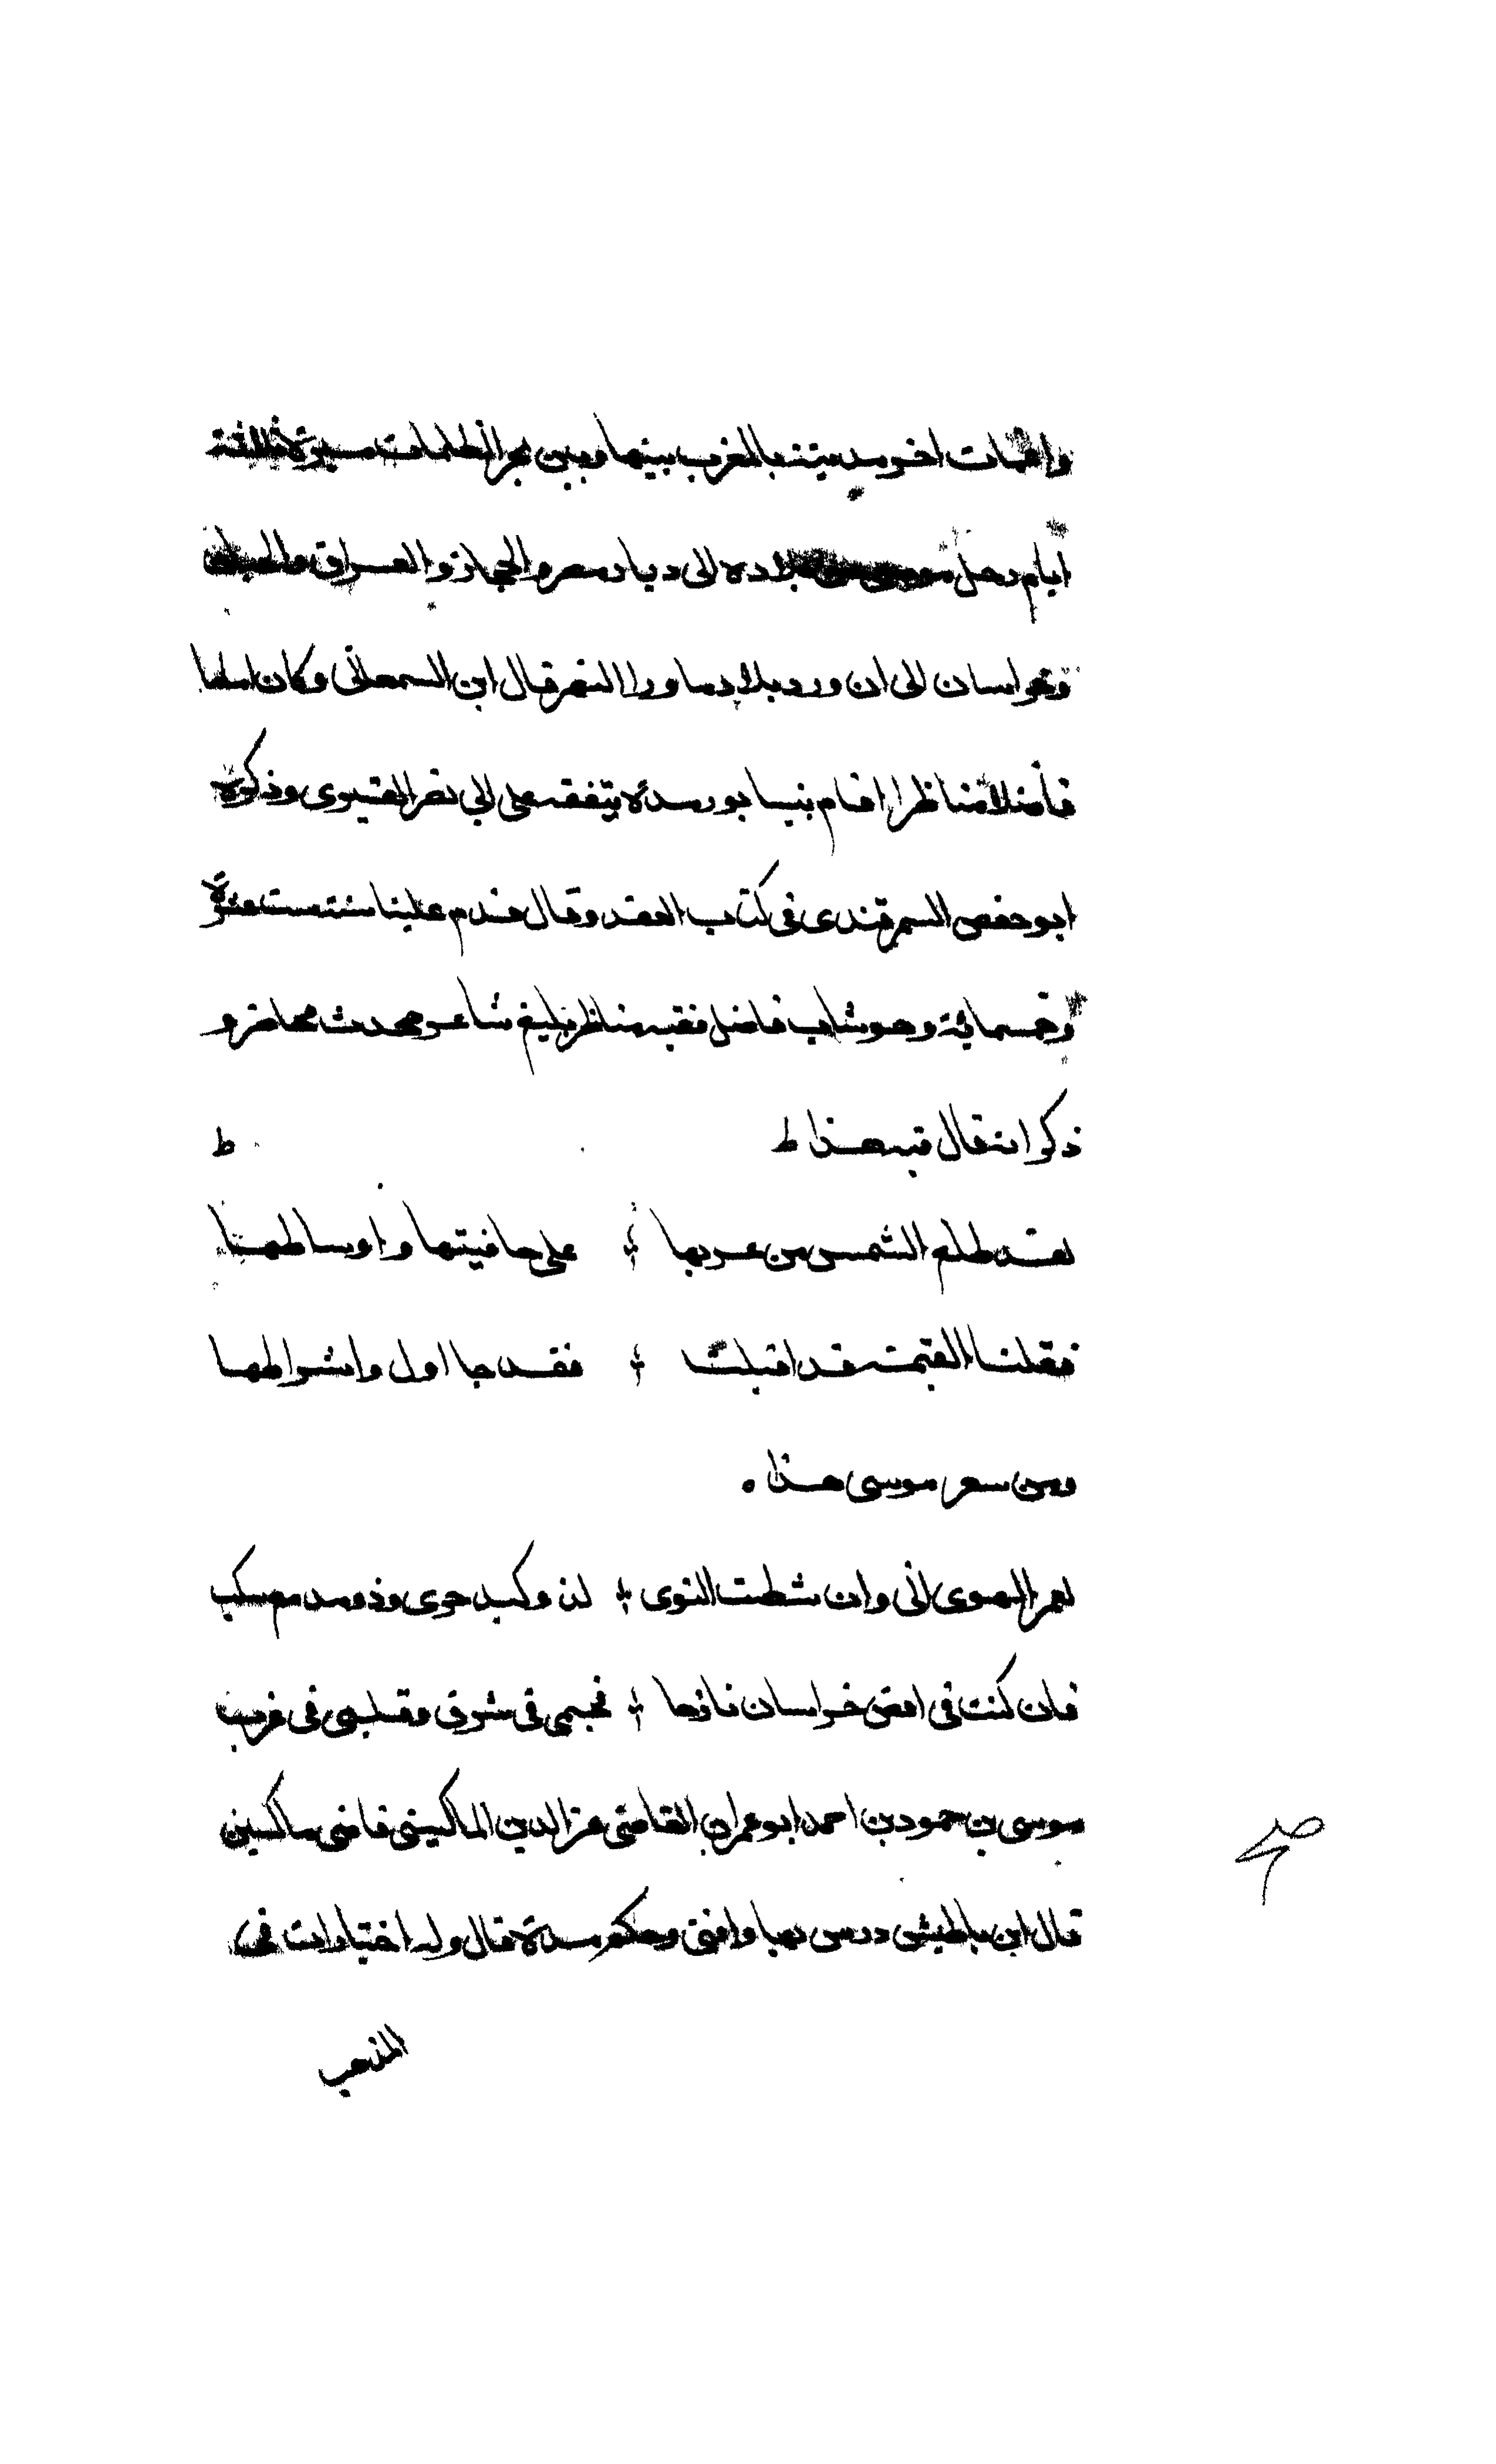 واغمات اخر مدينة بالمغرب بينها وبين بحر الظلمات مسيرة ثلثة
ايام رحل موسى من بلاده الى ديار مصر والحجاز والعراق والجبال
وخراسان الى ان ورد بلاد ما ورا النهر قال ابن السمعانى وكان اماما
فاضلا مناظرا اقام بنيسابور مدة يتفقه على ابى نصر القشيرى وذكره
ابو حفص السمرقندى فى كتاب القند وقال قدم علينا سنة ست عشرة
وخمسمائة وهو شاب فاضل فقيه مناظر بليغ شاعر محدث محاضر و
ذكر انه قال فيه هذا ط ط
لقد طلع الشمس من غربها على حافيتها واوساطهنا
فقلنا القيمة قد اقبلت فقد جا اول واشراطها
ومن سعر موسى هذا ه
لعمر الهوى انى وان شطت النوى لذو كبد حرى وذو مدمع سكب
فان كنت فى اقصى خراسان نازحا فجسمى فى شرق وقلبى فى غرب
موسى بن حمود بن احمد ابو عمران القاضى عز الدين الماكسينى قاضى ماكسين
قال ابن باطيش درس بها وافتى وحكم مدة قال وله اختيارات فى
المذهب